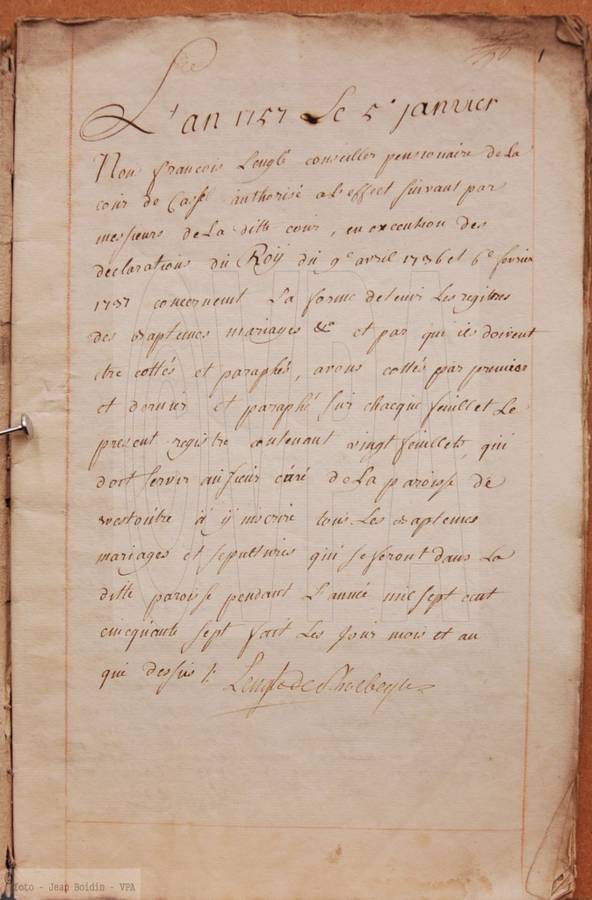 1
L'an 1757 Le 5e janvier
Nous francois Lengle conseiller pensionaire de La
cour de Cassel authorisé a l'effect suivant par
messieurs de La ditte cour, en execution des
declarations du Roÿ du 9e avril 1736 et 6e fevrier
1737 concernent La forme de tenir Les registres
des baptemes mariages &c et par qui ils doivent
etre cottés et paraphés, avons cottés par premier
et dernier et paraphé sur chacque feuillet Le
present registre contenant vingt feuillets, qui
doit servir au sieur curé de La paroisse de
westoutre à ÿ inscrire tous Les baptemes
mariages et sepultures qui se feront dans La
ditte paroisse pendant L'année mil sept cent
cincquante sept fait Les jour mois et an
que dessus /: Lengle de Schoebeque
foto - Jean Boidin - VPA